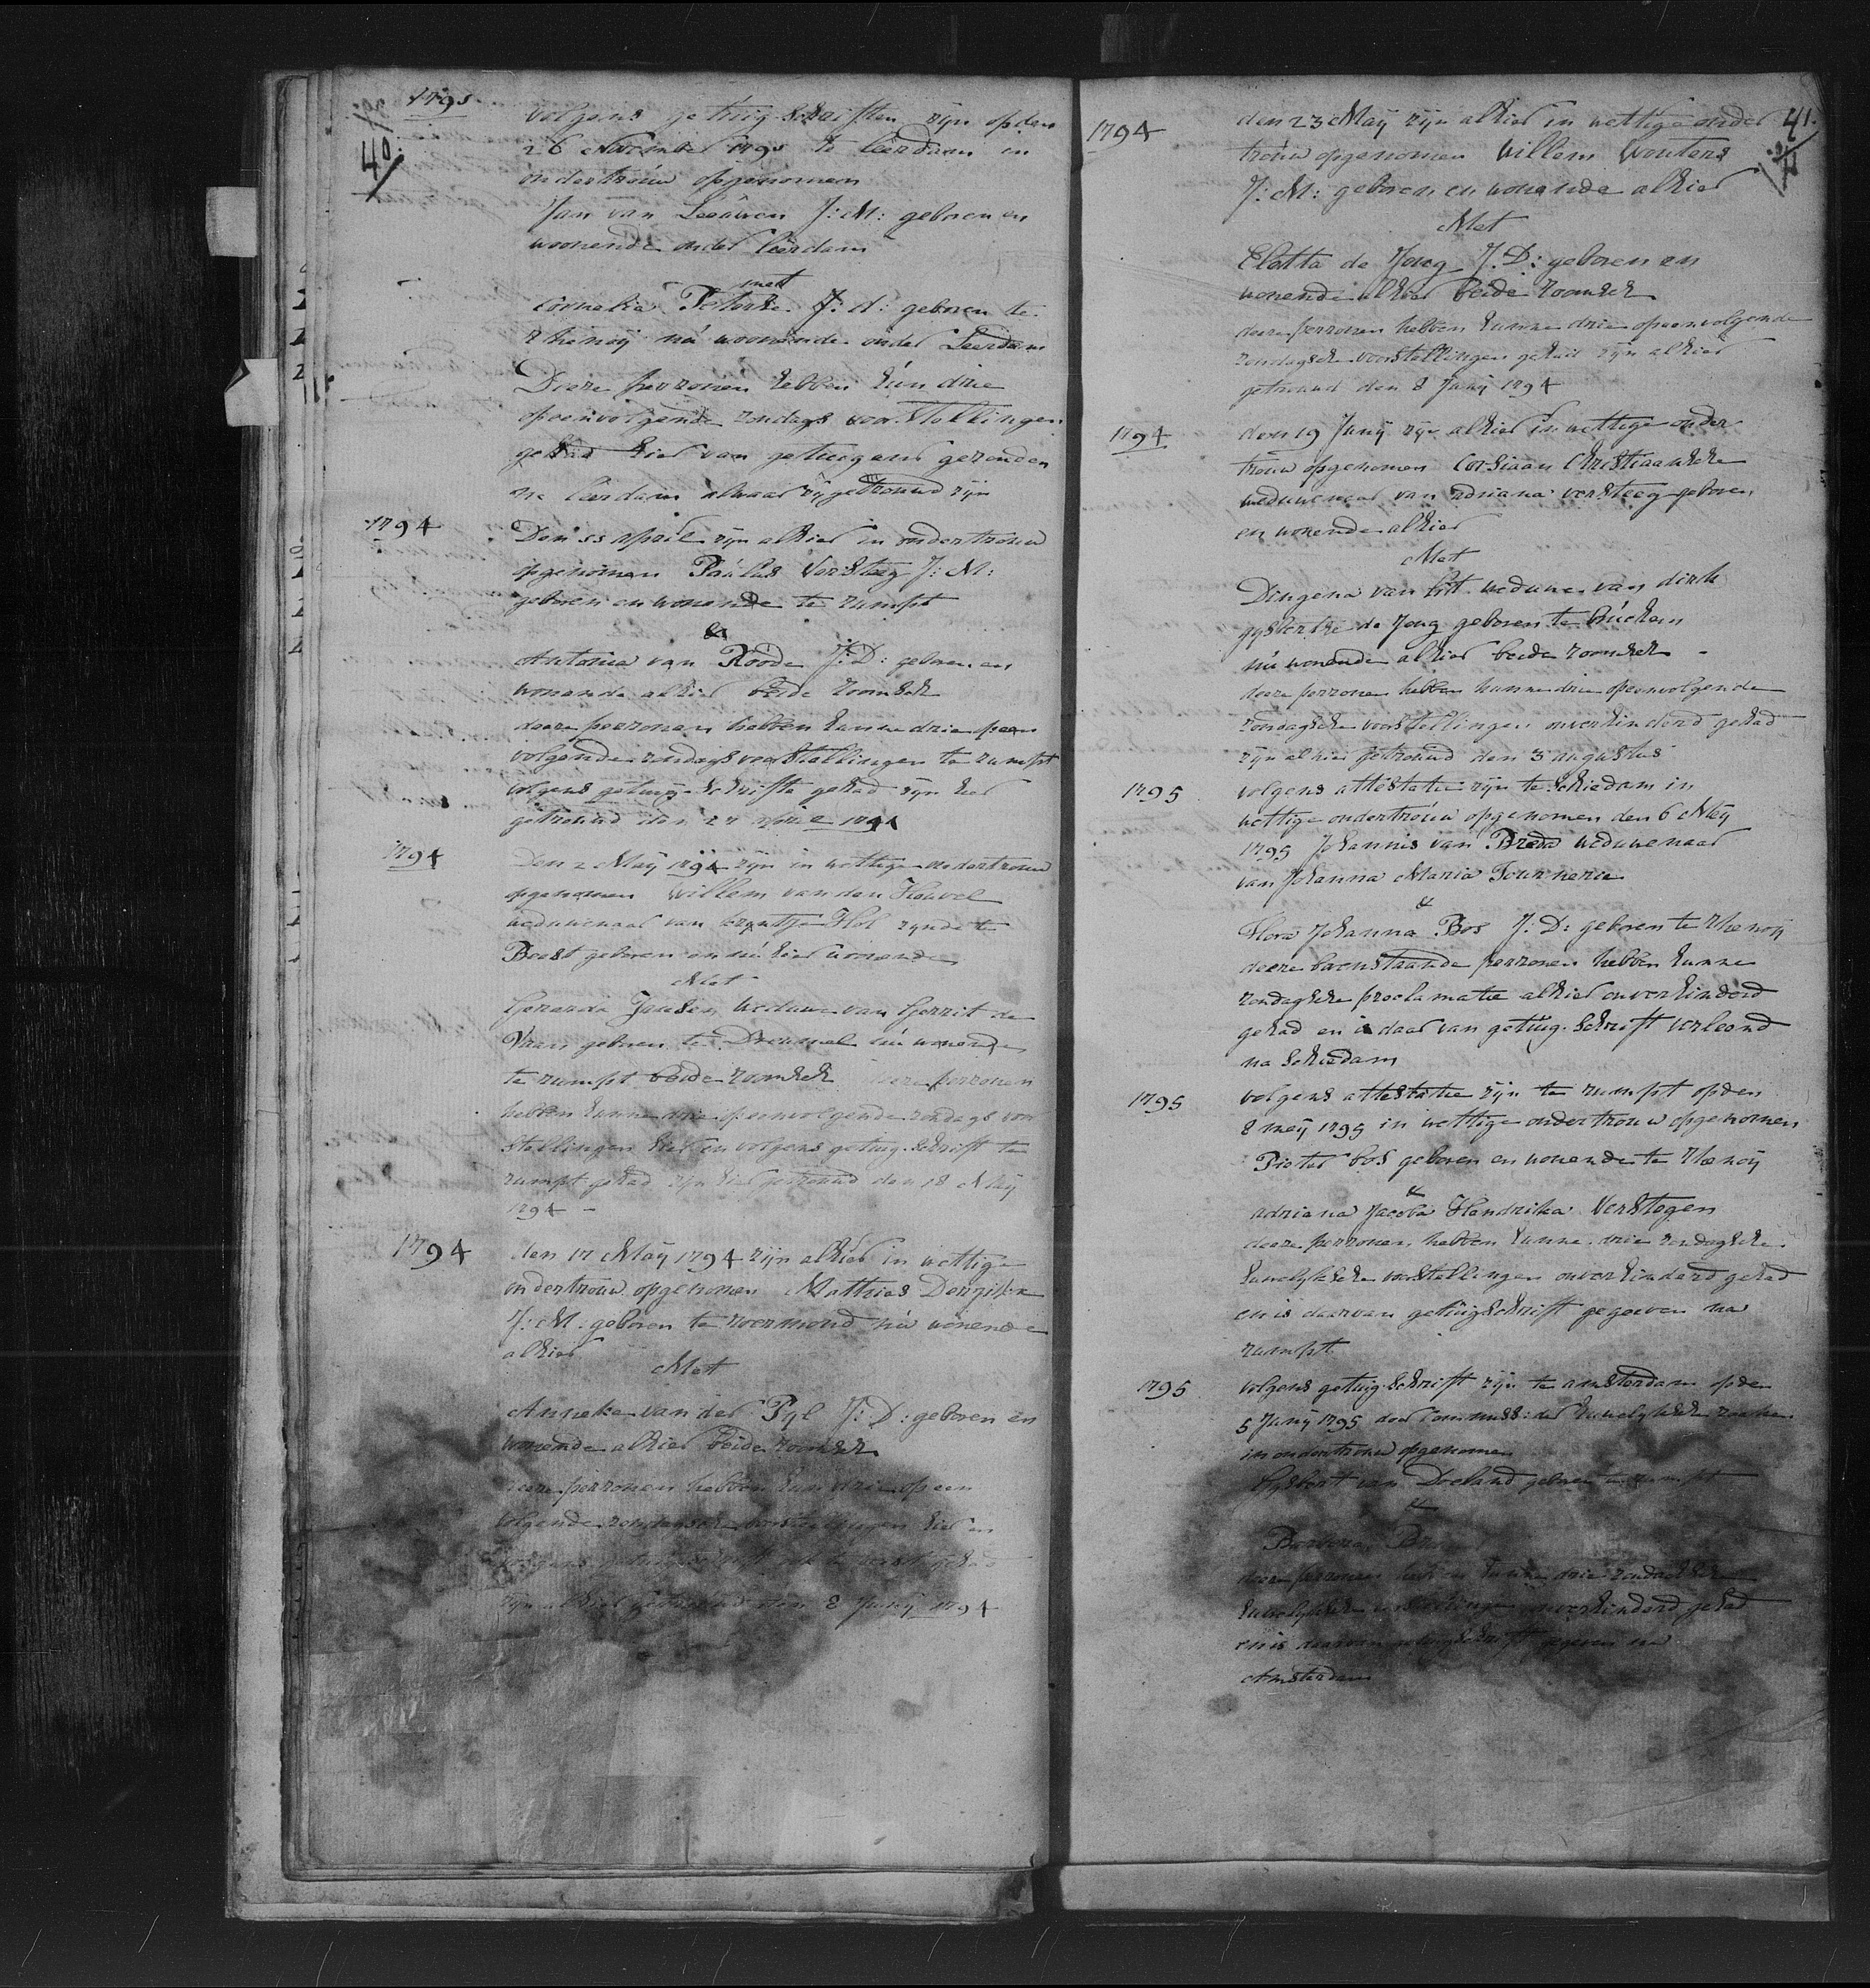 40:
1795
volgens getuig schriften zijn op den
26 November 1795 te Leerdam in
ondertrouw opgenomen
Jan van Leeuwen J: M: geboren en
woonende onder Leerdam
met
Cornelia J: d: geboren te
Rhenoij nu woonende onder Leerdam
Deeze perzonen hebben hun drie
opeenvolgende zondags voorstellingen
gehad hier van getuigenis gezonden
na Leerdam alwaar zij getrouwd zijn
1794
Den april zijn alhier in ondertrouw
opgenomen Paulus Versteeg J: M:
geboren en wonende te rumpt
&
Antonia van Roode J: D: geboren en
wonende alhier beide roomsch
deeze perzonen hebben hunne drie opeen
volgende zondags voorstellingen te rumpt
volgens getuig-schrifte gehad zijn hier
getrouwd den 27 april 1794
1794
Den 2 Maij 1794 zijn in wettige ondertrouw
opgenomen Willem van den Heuvel
weduwenaar van Hol zynde te
Beest geboren en nu hier wonende
Met
Gerarda Jansen weduwe van Gerrit de
Vaan geboren te Dreumel nu wonende
te rumpt beide roomsch deeze perzonen
hebben hunne drie opeenvolgende zondags voor
stellingen hier en volgens getuig-schrift te
rumpt gehad zijn hier getrouwd den 18 Maij
1794 -
1794
den 17 Maij 1794 zijn alhier in wettige
ondertrouw opgenomen Mathias
J: M. geboren te roermond nu wonende
alhier
Met
Anneke van der Pyl J: D: geboren en
wonende alhier beide roomsch
deeze perzonen hebben hun drie opeen
volgende zondagsche voorstellingen hier en
volgens getuigschrift gehad
zijn alhier getrouwd den 8 Junij 1794
41.
1794
den 23 Maij zijn alhier in wettige onder
trouw opgenomen Willem Wouters
J: M: geboren en wonende alhier
Met
de Jong J. D: geboren en
wonende alhier beide roomsch
deeze perzonen hebben hunne drie opeenvolgende
zondagsche voorstellingen gehad zijn alhier
getrouwd den 8 Junij 1794
1794
den 19 Junij zijn alhier in wettige onder
trouw opgenomen Corstiaan Christiaansche
weduwenaar van Adriana versteeg geboren
en wonende alhier
Met
Dingena van Lit weduwe van dirk
gysbertse de Jong geboren te
nu wonende alhier beide roomsch -
deeze perzonen hebben hunne drie opeenvolgende
zondagsche voorstellingen onverhinderd gehad
zijn alhier getrouwd den 3 augustus
1795
volgens attestatie zijn te Schiedam in
wettige ondertrouw opgenomen den 6 Meij
1795 Johannis van Breda weduwenaar
van Johanna Maria
&
Flora Johanna Bos J: D: geboren te Rhenoij
deeze bovenstaande perzonen hebben hunne
zondagsche proclamatie alhier onverhinderd
gehad en is daar van getuig-schrift verleend
na Schiedam
1795
volgens attestatie zijn te rumpt op den
8 meij 1795 in wettige ondertrouw opgenomen
Pieter bos geboren en wonende te Rhenoij
&
adriana Jacoba Hendrika Verstegen
deeze perzonen hebben hunne drie zondagsche
huwelyksche voorstellingen onverhinderd gehad
en is daarvan getuigschrift gegeeven na
rumpt
1795
volgens getuig-schrift zijn te amsterdam op den
5 Junij 1795 door Commiss: der huwelyksche zaaken
in ondertrouw opgenomen
Gysbert van Doeland geboren te rumpt
&
deeze perzonen hebben hunne drie zondagsche
huwelyksche voorstellingen onverhinderd gehad
en is daarvan getuigschrift gegeven na
Amsterdam